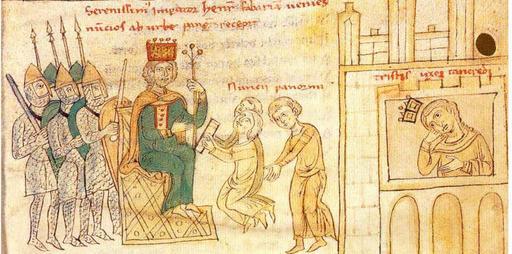 Serenissim' Imperator henric' fabariā veniēs
nūcios ab urbe recepit
Nuncii panormi
tristis uxor tancredi